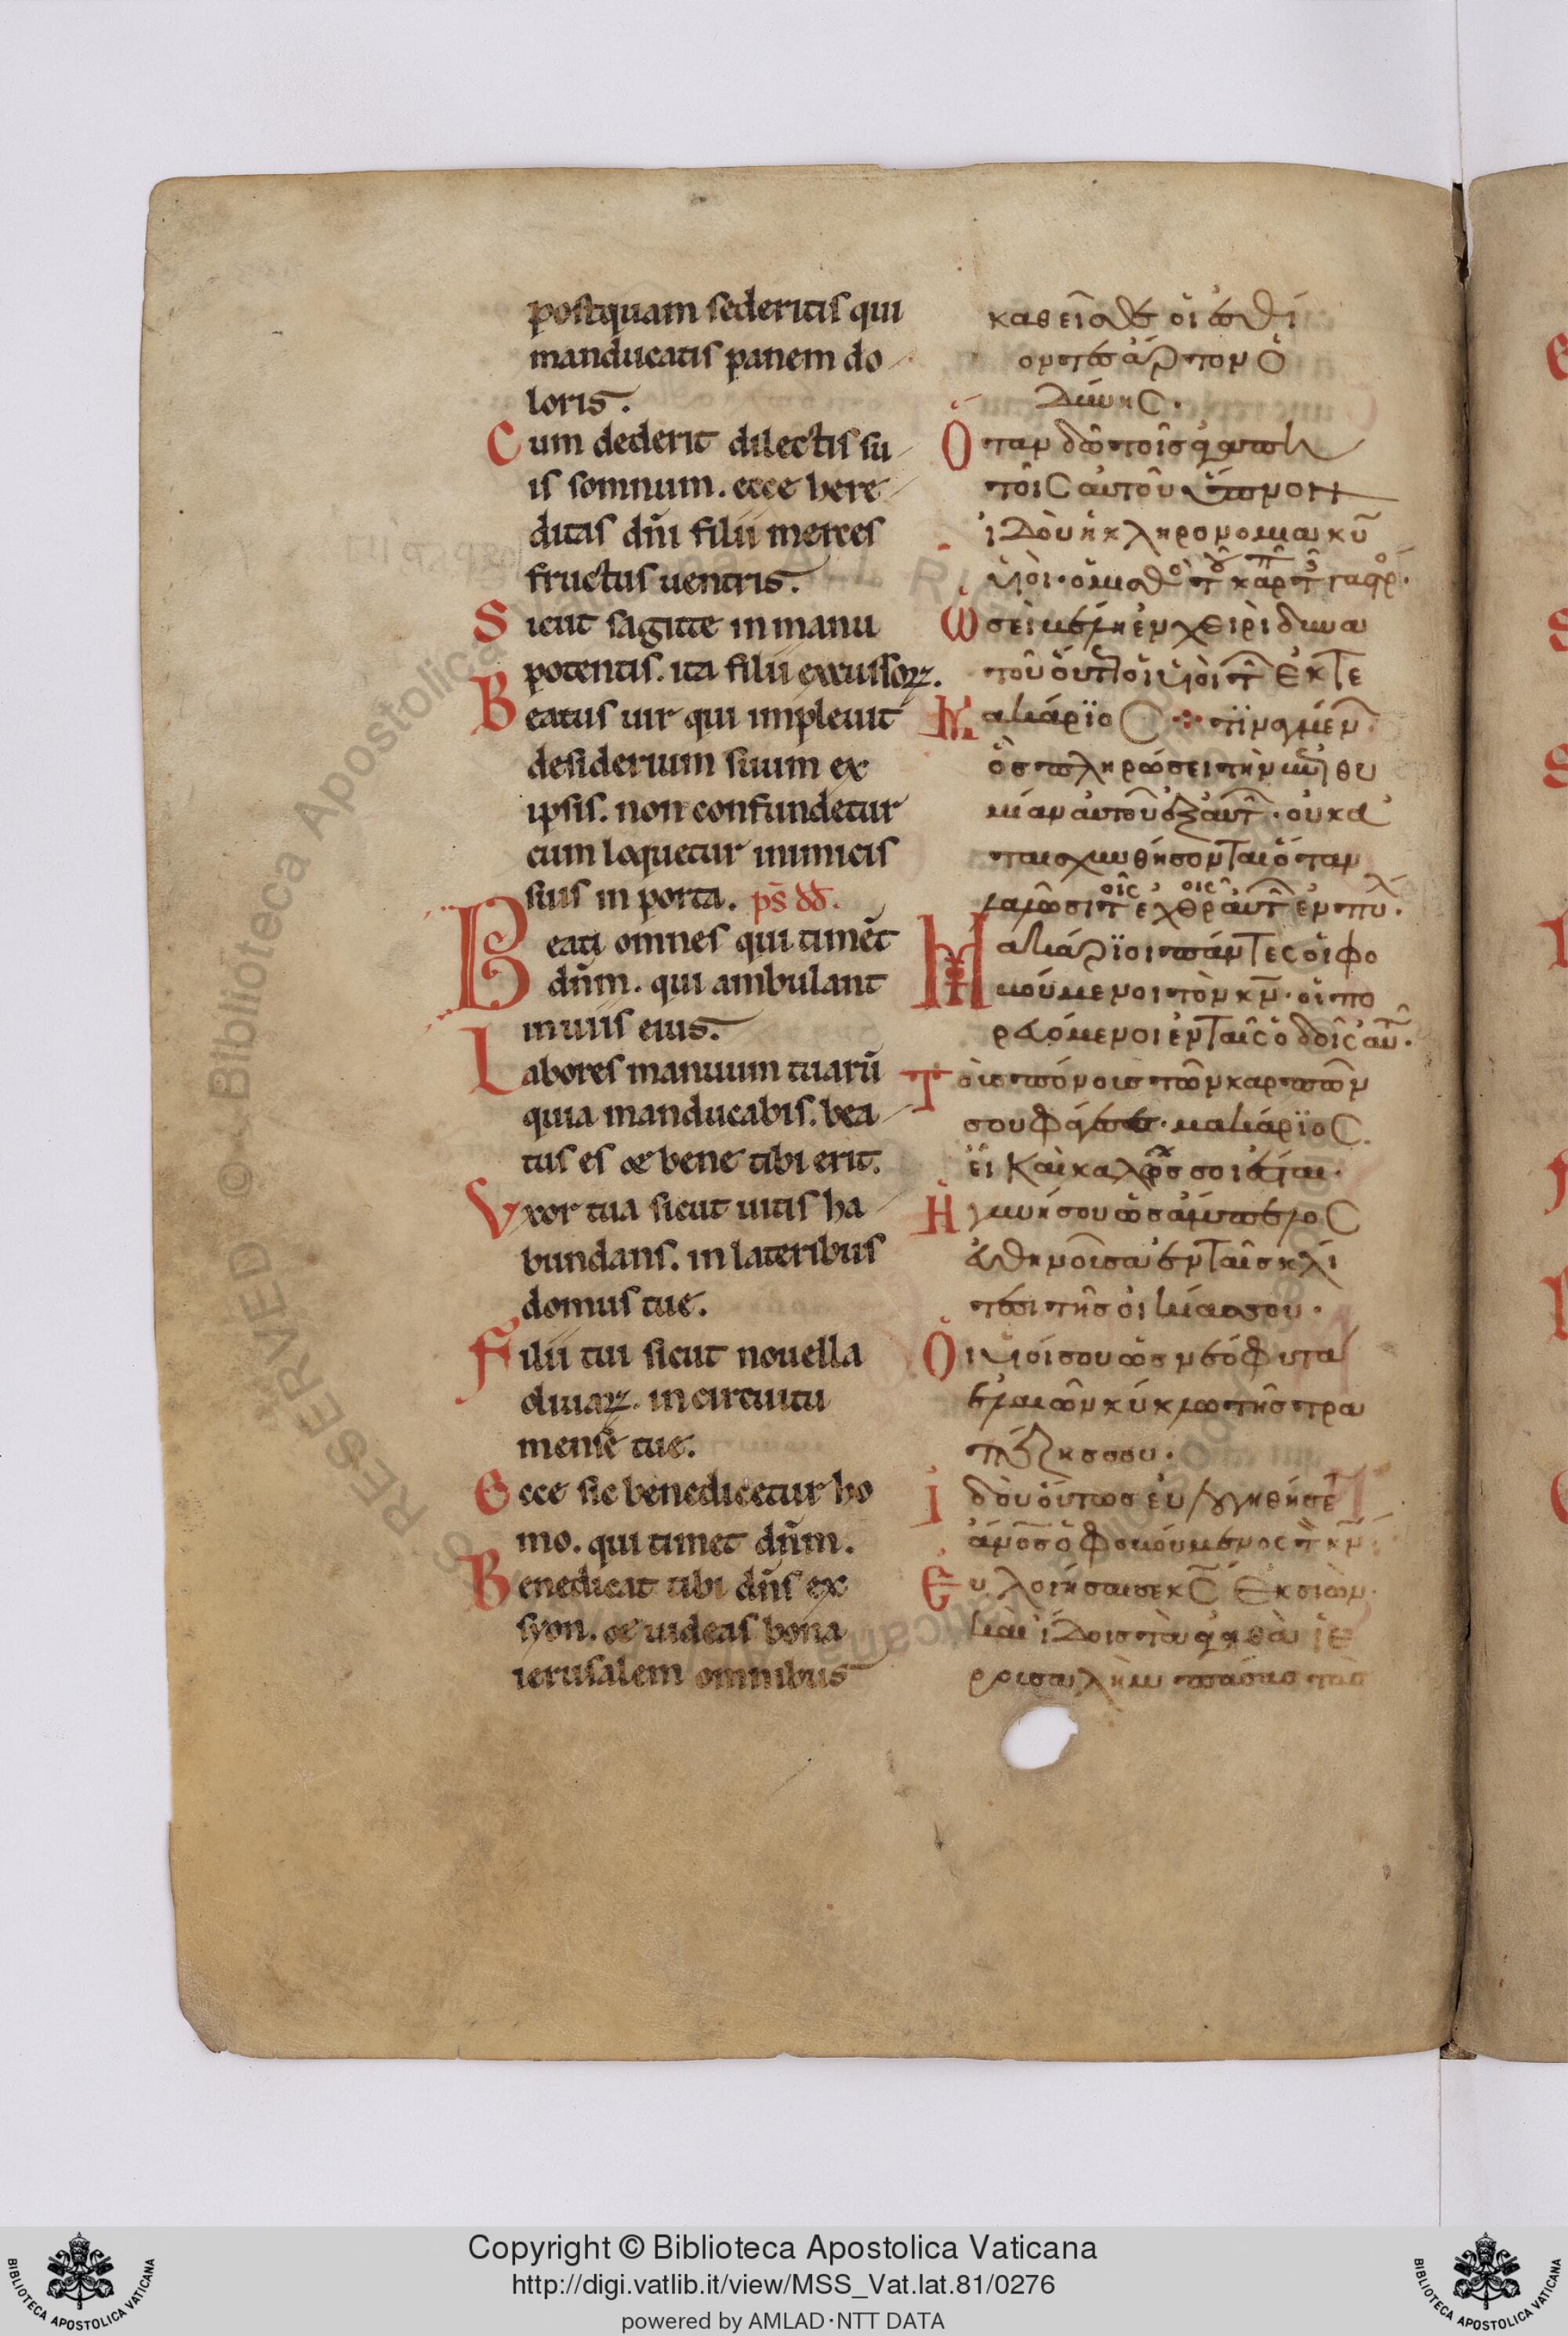 postquam sederitis qui
manducatis panem do
loris.
Cum dederit dilectis su
is somnum. ecce here
ditas dñi filii merces
fructus uentris.
Sicut sagitte in manu
potentis. ita filii excussoꝝ.
Beatus uir qui impleuit
desiderium suum ex
ipsis. non confundetur
cum loquetur inimicis
suis in porta. ps̄ dd̄.
Beati omnes qui timēt
dn̄m. qui ambulant
in uiis eius.
Labores manuum tuarū
quia manducabis. bea
tus es & bene tibi erit.
Vxor tua sicut uitis ha
bundans. in lateribus
domus tue.
Filii tui sicut nouella
oliuaꝝ. in circuitu
mense tue.
Ecce sic benedicetur ho
mo. qui timet dn̄m.
Benedicat tibi dn̄s ex
syon. & uideas bona
ierusalem omnibus
καθεῖσθε οἱ ἐσθί
οντες ἄρτον ὀ
δύνης.
Ὅταν δῶ τοῖς ἀγαπη
τοῖς αὐτοῦ ὕπνον
ἰδοὺ ἡ κληρονομια κῡ
Ὡσεὶ βέλη ἐν χειρὶ δυνα
τοῦ οὕτως οἱ υἱοὶ τῶν Ἐκτε
Μακάριος
ὃς πληρώσει τὴν ἐπιθυ
μίαν αὐτοῦ ἐξ αὐτῶν. οὐ κα
ταισχυνθήσονται ὅταν
Μακάριοι πάντες οἱ φο
βούμενοι τὸν κν̄. οἱ πο
ρευόμενοι ἐν ταῖς ὁδοῖς αὐτ̄.
Τοὺς πόνους τῶν καρπῶν
σου φάγεσαι. μακάριος
εἶ Καὶ καλῶς σοι ἔσται.
Ἡ γυνή σου ὡς ἄμπελος
εὐθηνοῦσα ἐν ταῖς κλί
τεσι τῆς οἰκίας σου.
Οἱ υἱοί σου ὡς νεόφυτα
ἐλαιῶν κύκλω τῆς τρα
πέζης σου.
ἰδοὺ οὕτως εὐλογηθήσε
ἄν̄ος ὁ φοβούμενος τ κν̄.
Εὐλογήσαι σε κς̄ Ἐκ σιὼν.
καὶ ἴδοις τὰ ἀγαθὰ ἱε
ρουσαλὴμ πάσας τὰς
Copyright © Biblioteca Apostolica Vaticana
http://digi.vatlib.it/view/MSS_Vat.lat.81/0276
powered by AMLAD·NTT DATA